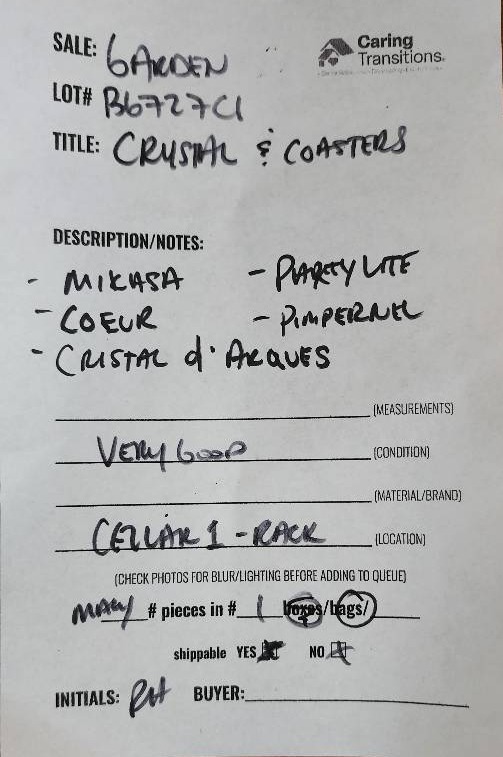 SALE: GARDEN
Caring
Transitions.
LOT# B6727C1
TITLE: CRYSTAL & COASTERS
DESCRIPTION/NOTES:
- MIKASA - PARTYLITE
- COEUR - PIMPERNEL
- CRISTAL d'ARQUES
(MEASUREMENTS)
VERY GOOD (CONDITION)
(MATERIAL/BRAND)
CELLAR 1 - RACK (LOCATION)
(CHECK PHOTOS FOR BLUR/LIGHTING BEFORE ADDING TO QUEUE)
MANY # pieces in # 1 boxes/bags/
shippable YES NO
INITIALS: RH BUYER: